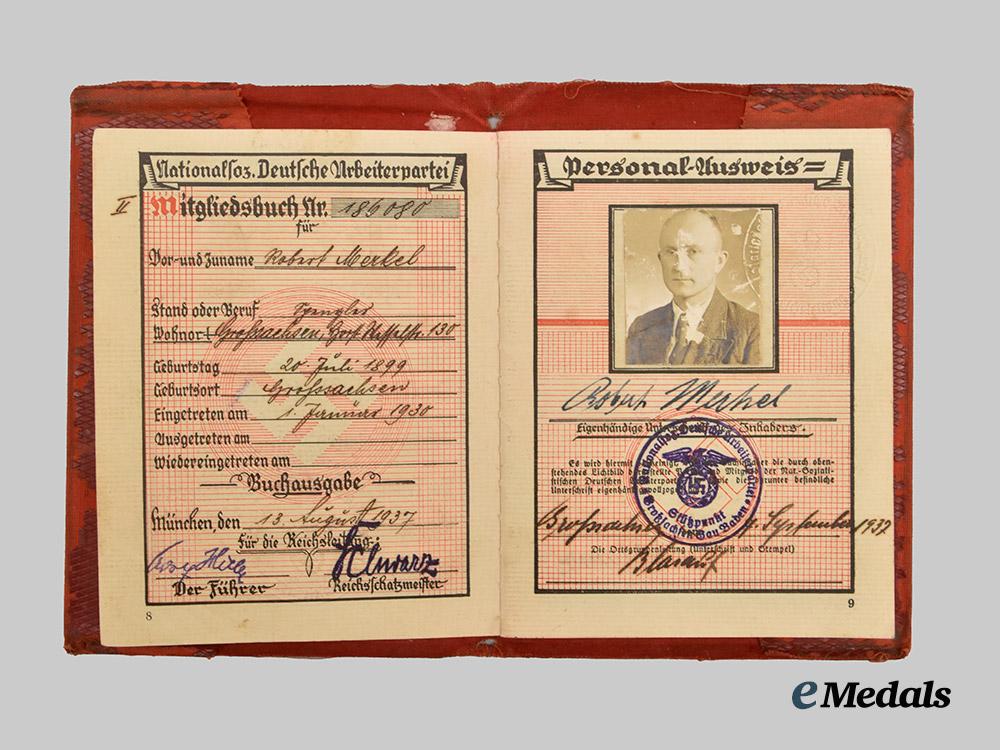 Nationalsoz. Deutsche Arbeiterpartei
II
Mitgliedsbuch Nr. 186080
für
Vor- und Zuname Robert Merkel
Stand oder Beruf Spengler
Wohnort Großsachsen, 130
Geburtstag 20. Juli 1899
Geburtsort Großsachsen
Eingetreten am 1. Januar 1930
Ausgetreten am
Wiedereingetreten am
Buchausgabe
München, den 13. August 1937
Für die Reichsleitung:
Schwarz
Der Führer Reichsschatzmeister
8
Personal-Ausweis
Robert Merkel
Eigenhändige Inhabers
Es wird hiermit der durch oben-
stehendes Lichtbild Mitglied der Nat.-Sozial-
istischen Deutschen darunter befindliche
Unterschrift eigenhändig vollzogen
Nationalsoz. Deutsche Arbeiterpartei
Stützpunkt
Großsachsen Gau Baden
Großsachsen 4. September 1937
Die Ortsgruppenleitung (Unterschrift und Stempel)
9
eMedals